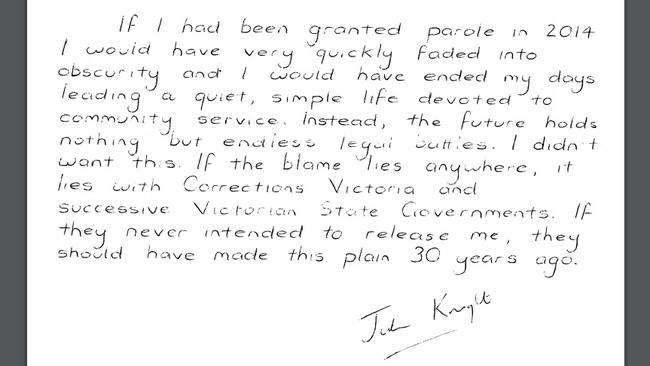 If I had been granted parole in 2014
I would have very quickly faded into
obscurity and I would have ended my days
leading a quiet, simple life devoted to
community service. Instead, the future holds
nothing but endless legal battles. I didn't
want this. If the blame lies anywhere, it
lies with Corrections Victoria and
successive Victorian State Governments. If
they never intended to release me, they
should have made this plain 30 years ago.
Knight